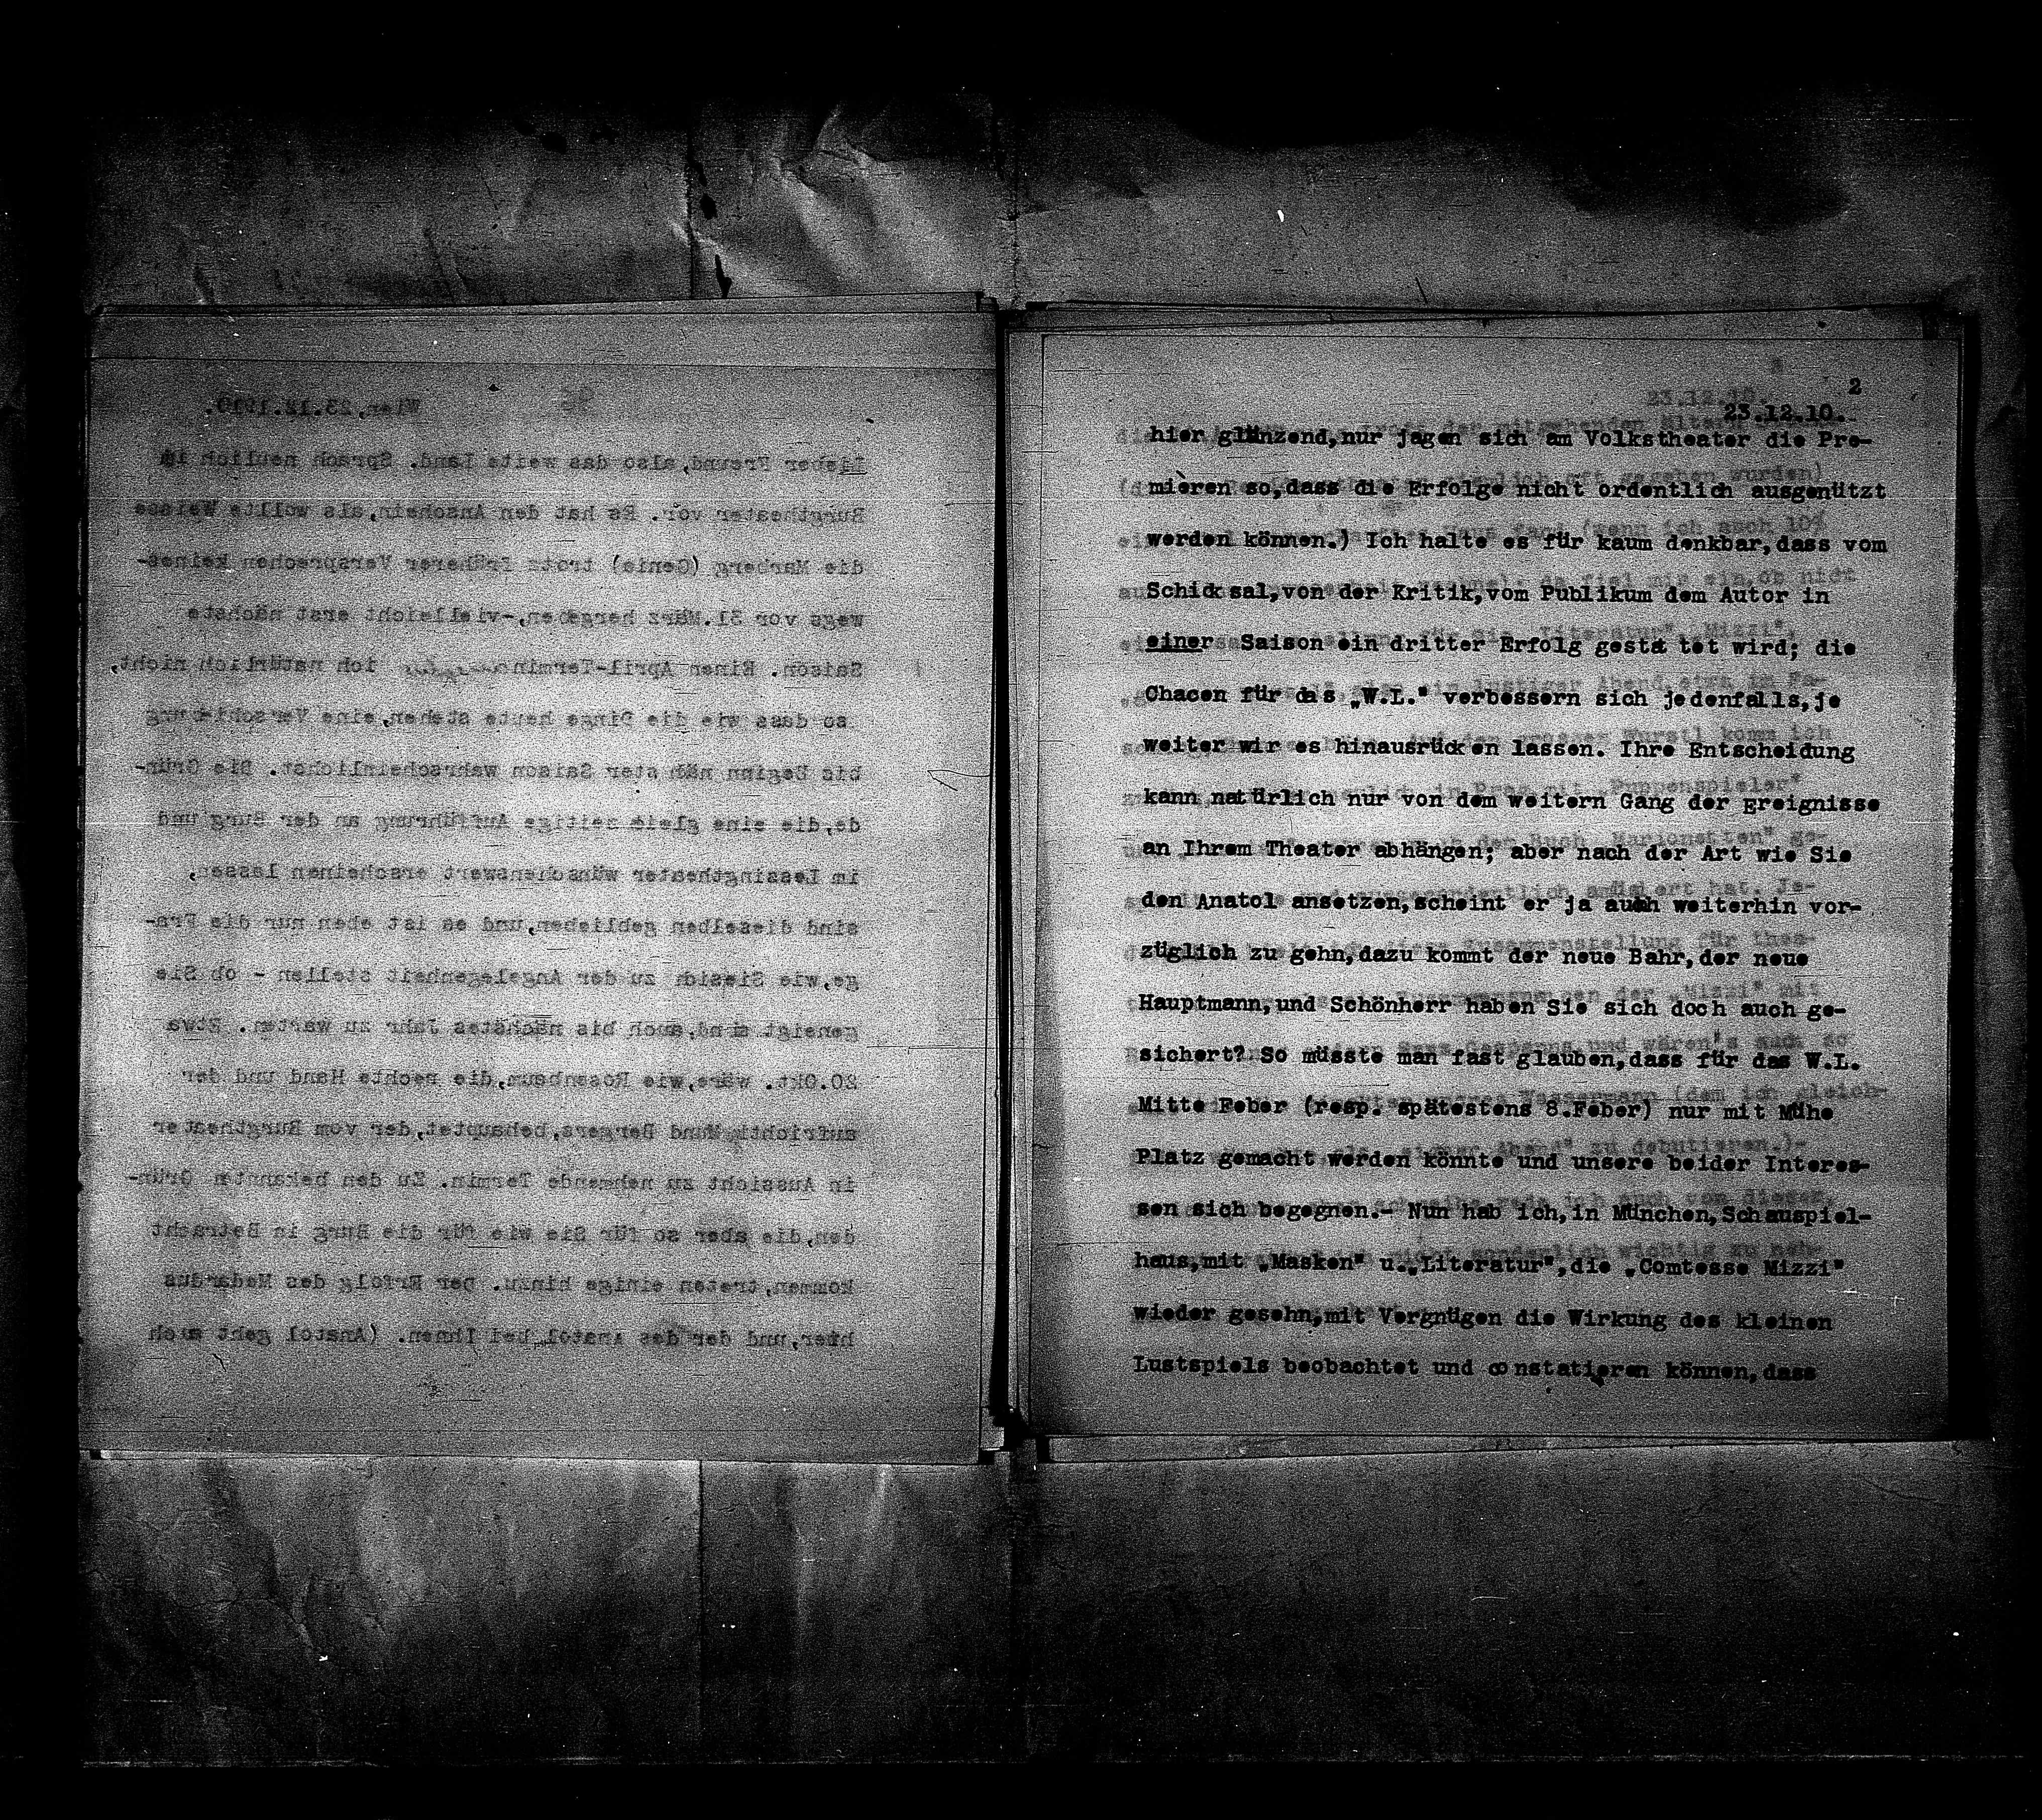 Wien,23.12.1910.
Lieber Freund,also das weite Land. Sprach neulich im
Burgtheater vor. Es hat den Anschein,als wollte Weisse
die Marberg (Genia) trotz früherer Versprechen keines-
wegs vor 31.März hergeben,-vielleicht erst nächste
Saison. Einen April-Termin ich natürlich nicht,
so dass wie die Dinge heute stehen,eine Verschiebung
bis Beginn nächster Saison wahrscheinlichst. Die Grün-
de,die eine gleichzeitige Aufführung an der Burg und
im Lessingtheater wünschenswert erscheinen lassen,
sind dieselben geblieben,und es ist eben nur die Fra-
ge,wie Siesich zu der Angelegenheit stellen - ob Sie
geneigt sind,auch bis nächstes Jahr zu warten. Etwa
20.Okt. wäre,wie Rosenbaum,die rechte Hand und der
aufrichtig Mund Bergers,behauptet,der vom Burgtheater
in Aussicht zu nehmende Termin. Zu den bekannten Grün-
den,die aber so für Sie wie für die Burg in Betracht
kommen,treten einige hinzu. Der Erfolg des Medardus
hier,und der des Anatol bei Ihnen. (Anatol geht auch
2
23.12.10.
hier glänzend,nur jagen sich am Volkstheater die Pre-
mièren so,dass die Erfolge nicht ordentlich ausgenützt
werden können.) Ich halte es für kaum denkbar,dass vom
Schicksal,von der Kritik,vom Publikum dem Autor in
einer Saison ein dritter Erfolg gestattet wird; die
Chacen für das „W.L." verbessern sich jedenfalls,je
weiter wir es hinausrücken lassen. Ihre Entscheidung
kann natürlich nur von dem weitern Gang der Ereignisse
an Ihrem Theater abhängen; aber nach der Art wie Sie
den Anatol ansetzen,scheint er ja auch weiterhin vor-
züglich zu gehn,dazu kommt der neue Bahr,der neue
Hauptmann,und Schönherr haben Sie sich doch auch ge-
sichert? So müsste man fast glauben,dass für das W.L.
Mitte Feber (resp. spätestens 8.Feber) nur mit Mühe
Platz gemacht werden könnte und unsere beider Interes-
sen sich begegnen.- Nun hab ich,in München,Schauspiel-
haus,mit „Masken" u.„Literatur",die „Comtesse Mizzi"
wieder gesehn,mit Vergnügen die Wirkung des kleinen
Lustspiels beobachtet und constatieren können,dass